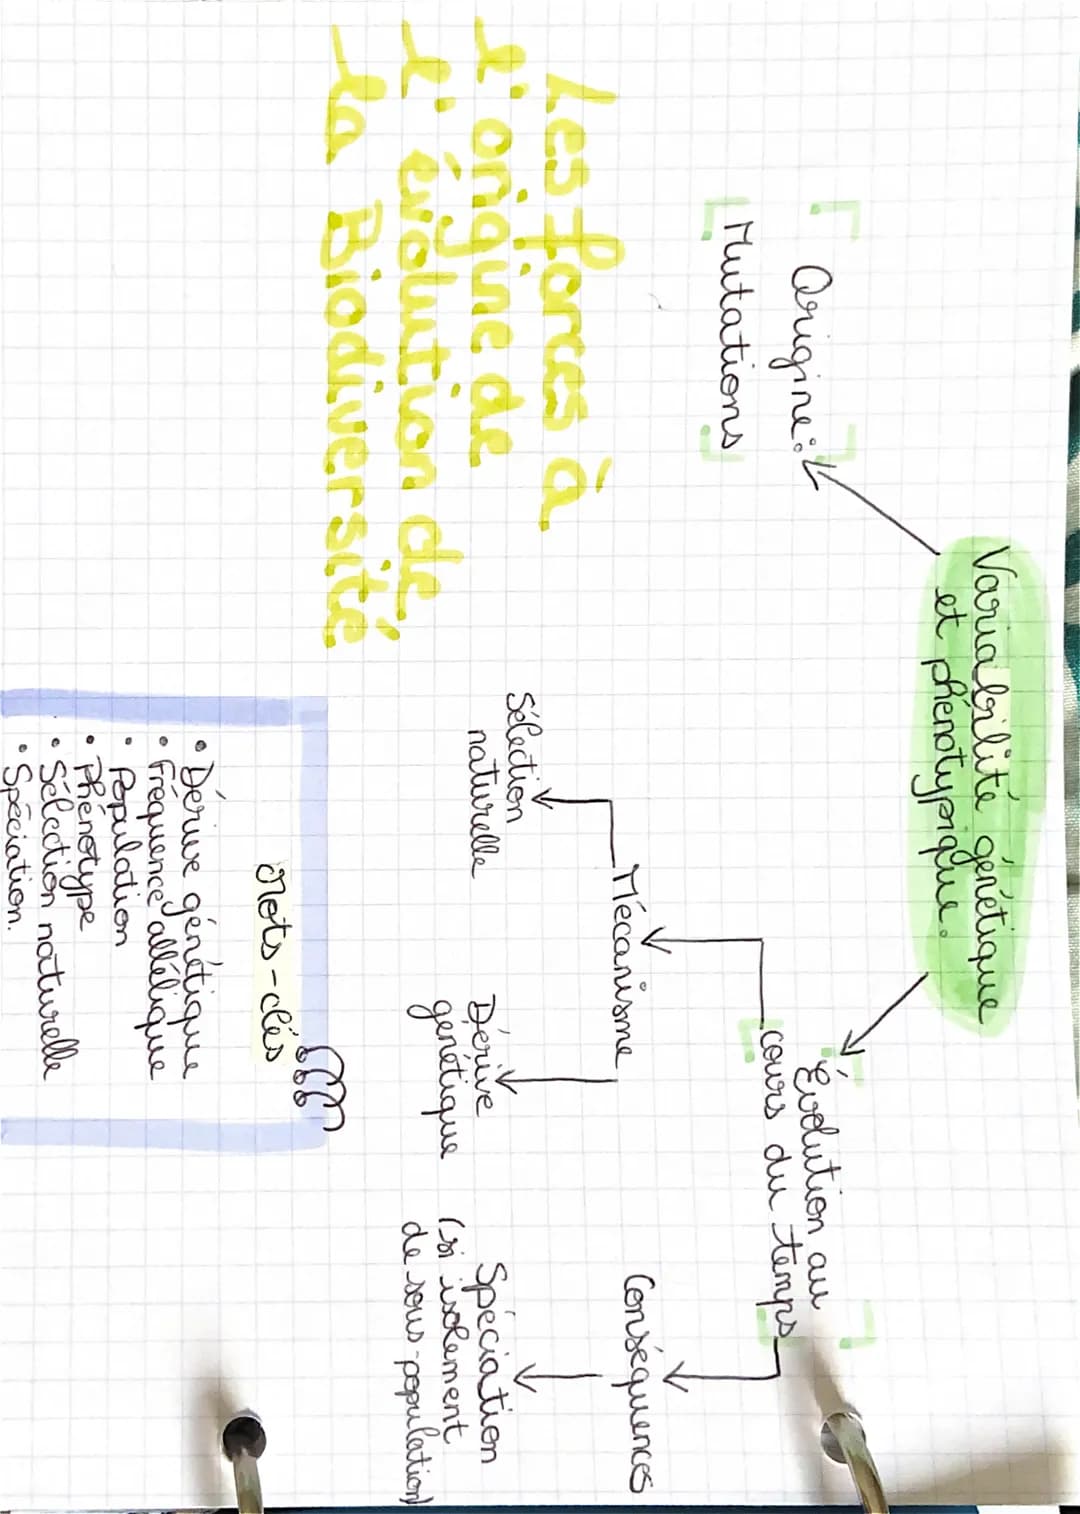 Variabilité génétique
et phénotypique.
Origine:
Mutations
Évolution au
cours du temps
Mécanisme
Sélection
naturelle
Dérive
génétique
Conséquences
Spéciation
(si isolement
de sous-population)
Les forces à
l'origine de
l'évolution de
la Biodiversité
Mots-clés
• Dérive génétique
• Fréquence allélique
• Population
• Phénotype
• Sélection naturelle
• Spéciation.